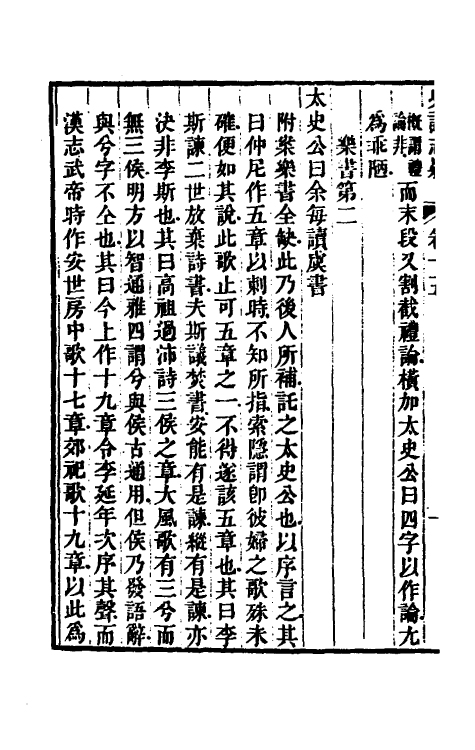 概謂禮論非而末段又割截禮論橫加太史公曰四字以作論尢
為乖陋
樂書第二
太史公曰余每讀虞書
附案樂書全缺此乃後人所補託之太史公也以序言之其
曰仲尼作五章以刺時不知所指索隱謂卽彼婦之歌殊未
確便如其說此歌止可五章之一不得遂該五章也其曰李
斯諫二世放棄詩書夫斯議焚書安能有是諫縱有是諫亦
決非李斯也其曰高祖過沛詩三侯之章大風歌有三兮而
無三侯明方以智通雅四謂兮與侯古通用但侯乃發語辭
與兮字不仝也其曰今上作十九章令李延年次序其聲而
漢志武帝時作安世房中歌十七章郊祀歌十九章以此為